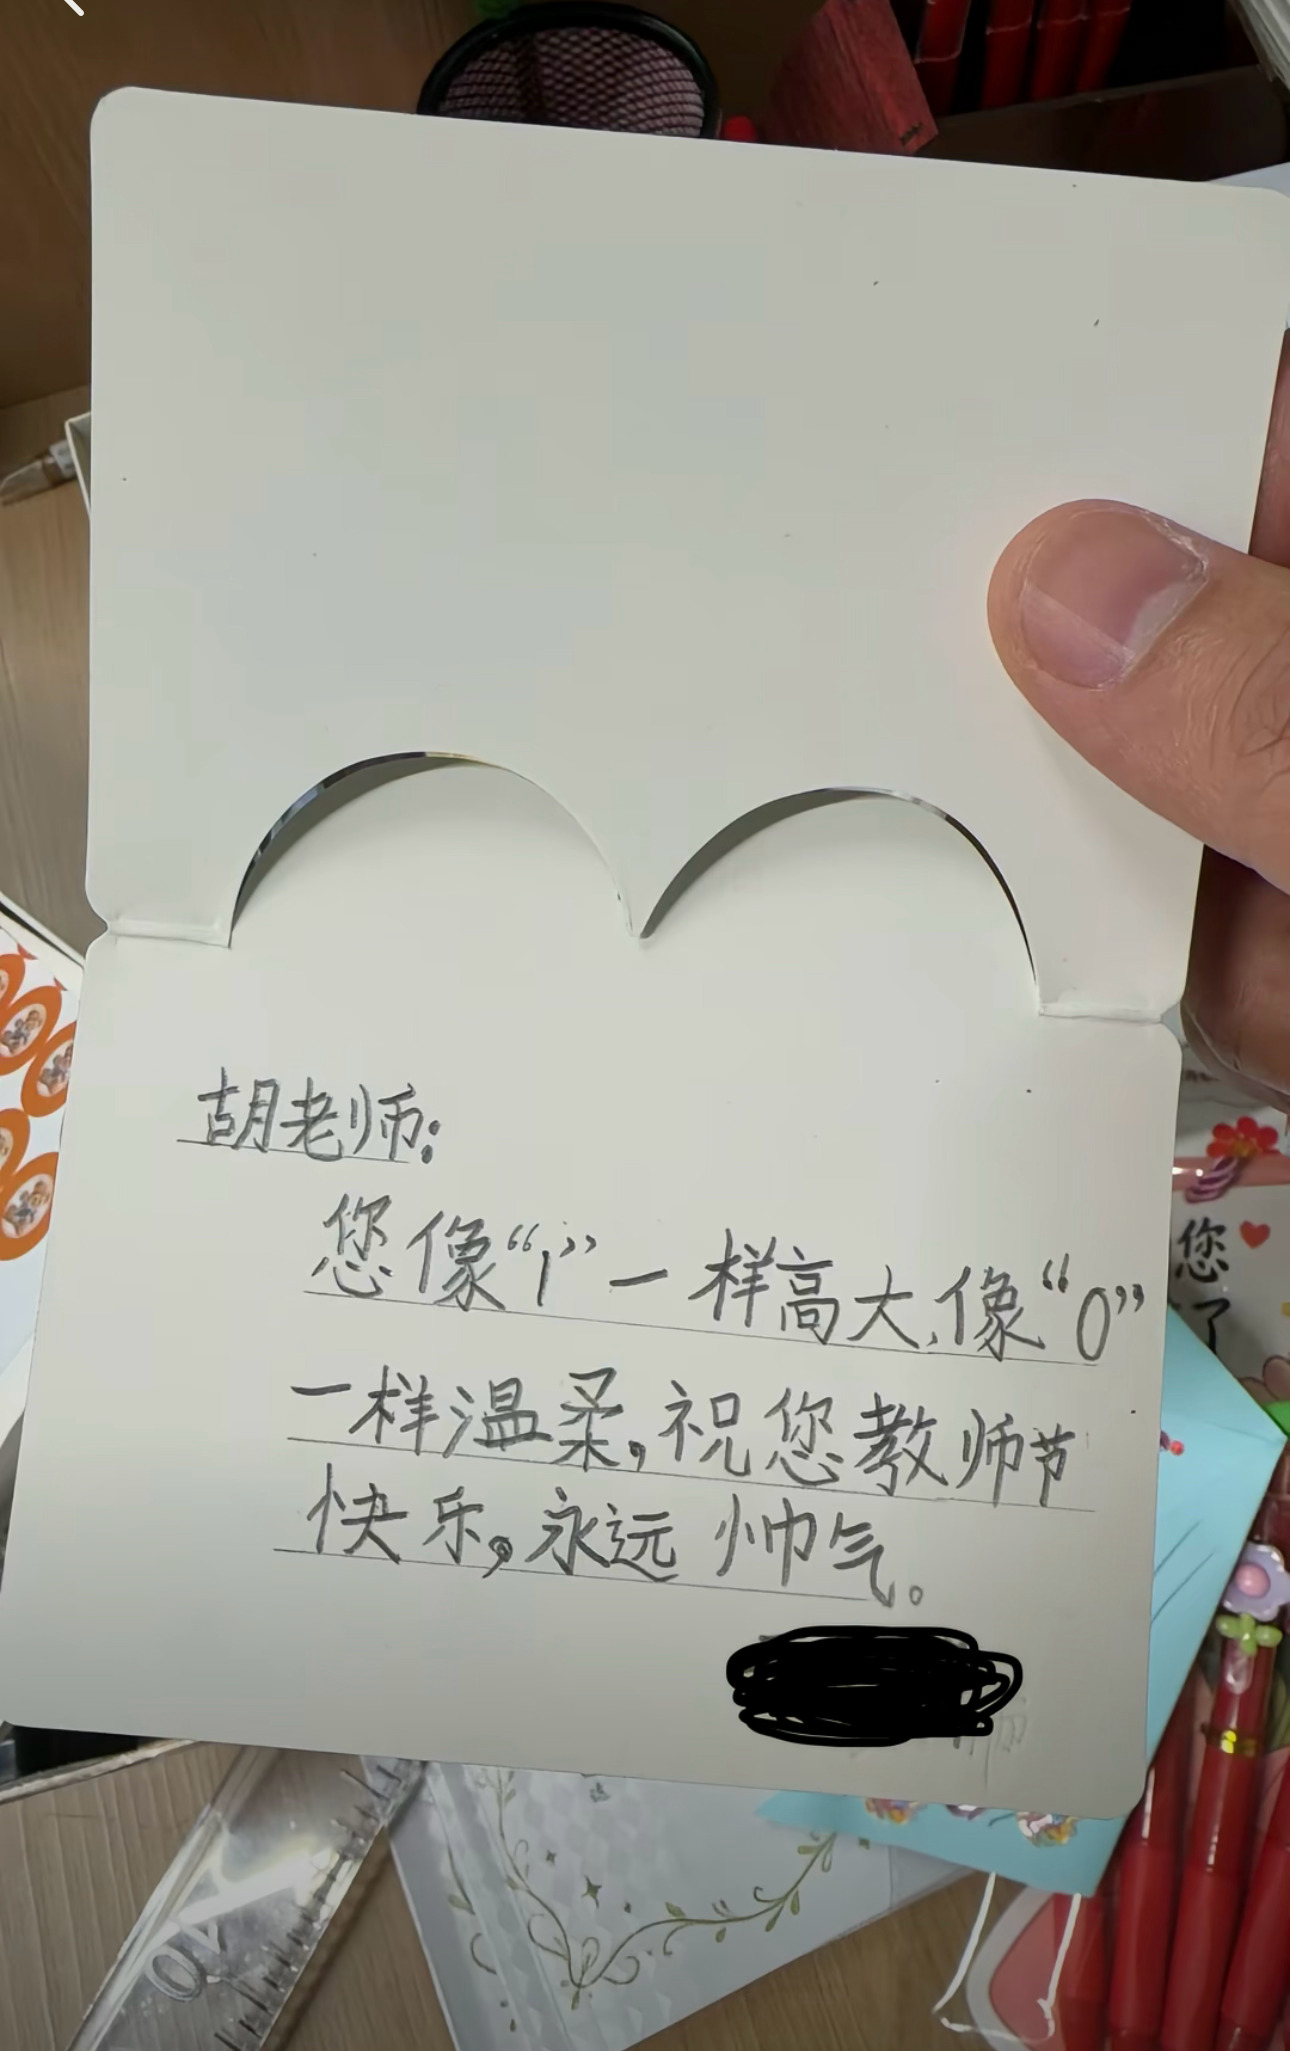 胡老师:
您像“1”一样高大,像“0”
一样温柔,祝您教师节
快乐,永远帅气。
您
了